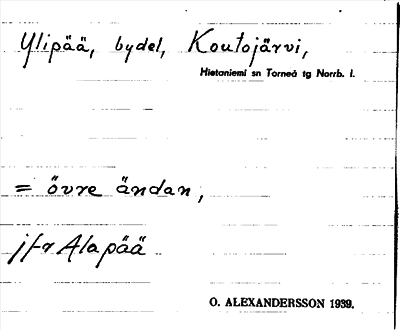 Ylipää, bydel, Koutojärvi,
Hietaniemi sn Torneå tg Norrb. l.
= övre ändan,
jfr Alapää
O. ALEXANDERSSON 1939.